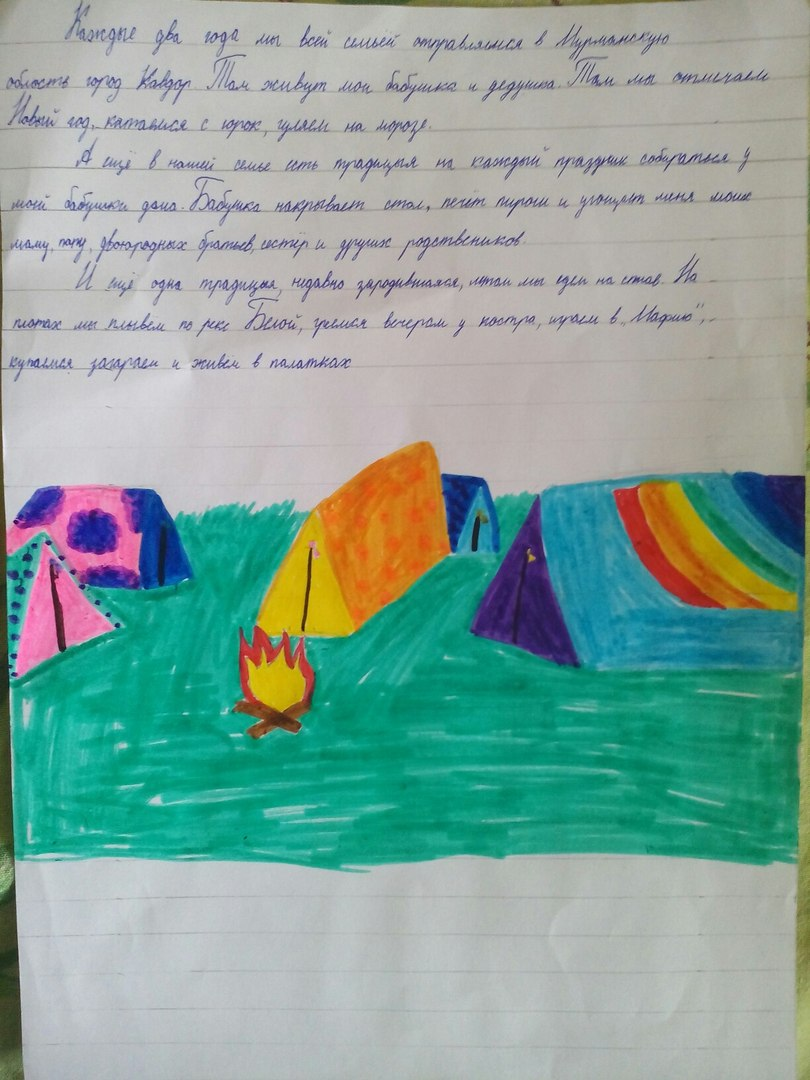 Каждые два года мы всей семьёй отправляемся в Мурманскую
область город Ковдор. Там живут мои бабушка и дедушка. Там мы отмечаем
Новый год, катаемся с горок, гуляем на морозе.
А ещё в нашей семье есть традицыя на каждый праздник собираться у
моей бабушки дома. Бабушка накрывает стол, печёт пироги и угощает меня моих
маму, папу, двоюродных братьев, сестёр и других родствеников.
И ещё одна традицыя, недавно зародившаяся, летом мы едем на сплав. На
плотах мы плывём по реке Белой, греемся вечером у костра, играем в „Мафию",
купаемся загараем и живём в палатках